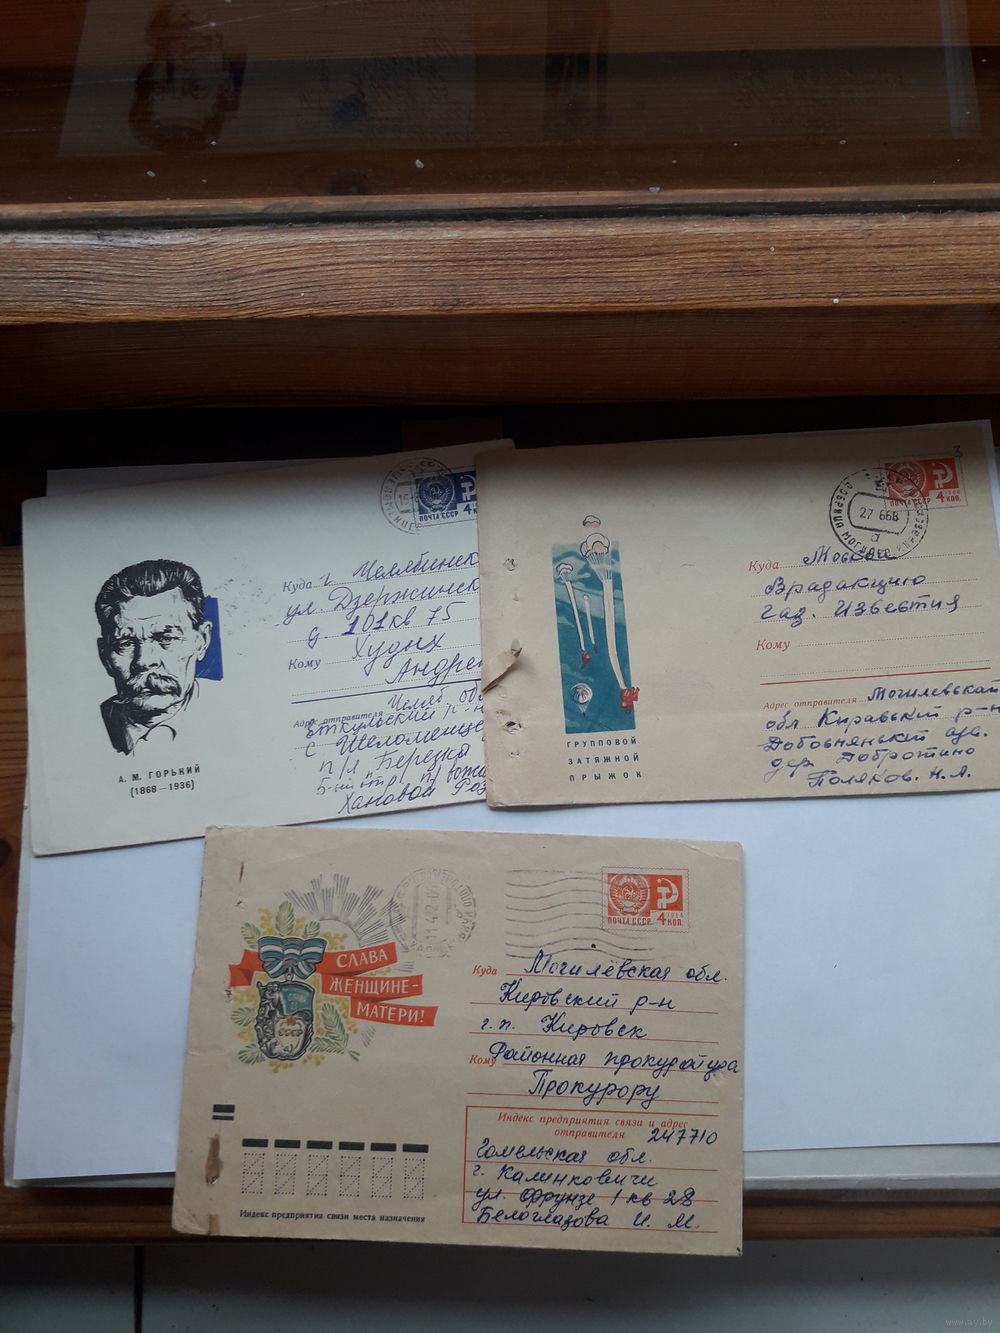 А. М. ГОРЬКИЙ
(1868—1936)
ПОЧТА СССР
4
Куда г. Челябинск
ул. Дзержинск
д. 101 кв 75
Кому Худых
Андре
Адрес отправителя Челяб об
Еткульский р-н
с. Шеломенце
п/л "Березка
5-ый отр. п/вожа
Хановой Роз
3
ПОЧТА СССР 4 КОП.
1966
27 668
ГРУППОВОЙ
ЗАТЯЖНОЙ
ПРЫЖОК
Куда Москва
Врадакцию
газ. Известия
Кому
Адрес отправителя Могилевская
обл Кировский р-н
дер Добротино
Поляков. Н. А.
СЛАВА
ЖЕНЩИНЕ-
МАТЕРИ!
СССР
ПОЧТА СССР 4 КОП.
Куда Могилёвская обл.
Кировский р-н
г. п. Кировск
Кому Районная прокуратура
Прокурору
Индекс предприятия связи и адрес
отправителя 247710
Гомельская обл.
г. Калинковичи
ул. Фрунзе 1 кв 28
Белоглазова И. М.
Индекс предприятия связи места назначения
www.ay.by